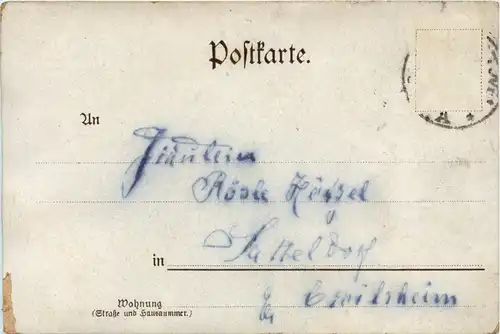 Postkarte.
An
Fräulein
Rösle
in Satteldorf
Crailsheim
Wohnung
(Straße und Hausnummer.)